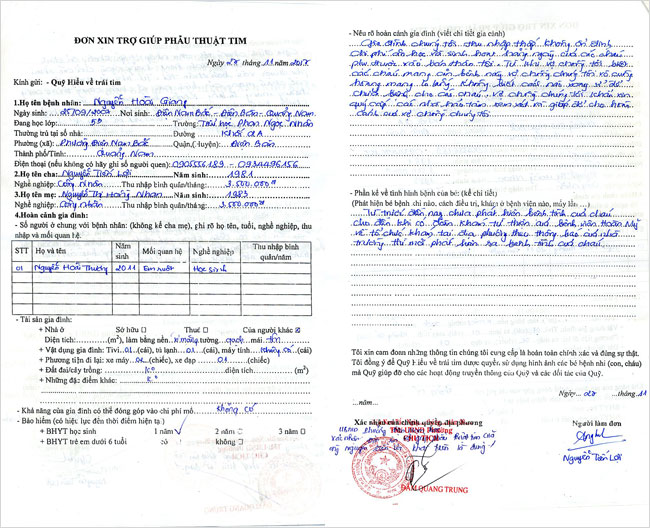 ĐƠN XIN TRỢ GIÚP PHẪU THUẬT TIM
Ngày 28 tháng 11 năm
Kính gửi: - Quỹ Hiểu về trái tim
1.Họ tên bệnh nhân: Nguyễn Hoài Giang
Ngày sinh: 25/09/2009 Nơi sinh: Điện Nam Bắc - Điện Bàn - Quảng Nam
Đang học lớp: 5D Trường: Tiểu học Phan Ngọc Nhân
Thường trú tại số nhà: Đường Khối 2A
Phường (xã): Phường Điện Nam Bắc Quận,(Huyện): Điện Bàn
Thành phố/Tỉnh: Quảng Nam
Điện thoại (nếu không có hãy ghi số người quen): 0905556189 - 0934496156
2.Họ tên cha: Nguyễn Tấn Lợi Năm sinh: 1981
Nghề nghiệp: Công Nhân Thu nhập bình quân/tháng: 3.500.000đ
3.Họ tên mẹ: Nguyễn Thị Hồng Nhạn Năm sinh: 1983
Nghề nghiệp: Công Nhân Thu nhập bình quân/tháng: 3.500.000đ
4.Hoàn cảnh gia đình:
- Số người ở chung với bệnh nhân: (không kể cha mẹ), ghi rõ họ tên, tuổi, nghề nghiệp, thu nhập và mối quan hệ.
STT Họ và tên Năm sinh Mối quan hệ Nghề nghiệp Thu nhập bình quân/năm
01 Nguyễn Hoài Thương 2011 Em ruột Học sinh
- Tài sản gia đình:
+ Nhà ở Sở hữu Thuê Của người khác
Diện tích: (m²), làm bằng nền xi măng tường gạch mái tôn
+ Vật dụng gia đình: Tivi 01 (cái), tủ lạnh 01 (cái), máy tính không có (cái)
+ Phương tiện đi lại: xe máy 02 (chiếc), xe đạp 01 (chiếc)
+ Đất đai/cây trồng: diện tích (m²)
+ Những đặc điểm khác:
- Khả năng của gia đình có thể đóng góp vào chi phí mổ: không có
- Bảo hiểm (có hiệu lực đến thời điểm hiện tại.)
+ BHYT học sinh 1 năm 2 năm 3 năm
+ BHYT trẻ em dưới 6 tuổi có không
- Nêu rõ hoàn cảnh gia đình (viết chi tiết gia cảnh)
Gia đình chúng tôi thu nhập thấp không ổn định
Chi phí ăn học và sinh hoạt hằng ngày của các cháu
phụ thuộc vào bản thân tôi. Từ khi vợ chồng tôi biết
các cháu mang căn bệnh này vợ chồng chúng tôi vô cùng
hoang mang lo lắng không biết
chữa bệnh cho cháu. vợ chồng chúng tôi
quý cấp các nhà hảo tâm xem xét và giúp đỡ cho hoàn
cảnh của vợ chồng chúng tôi
- Phần kể về tình hình bệnh của bé: (kể chi tiết)
(Phát hiện bé bệnh khi nào, cách điều trị, khám ở bệnh viện nào, mấy lần ...)
Từ trước đến nay chưa phát hiện bệnh tình của cháu
cho đến khi có đoàn khám từ thiện của bệnh viện Hoàn Mỹ
về tổ chức khám tại địa phương theo thông báo của nhà
trường thì mới phát hiện ra bệnh tình của cháu.
Tôi xin cam đoan những thông tin chúng tôi cung cấp là hoàn toàn chính xác và đúng sự thật.
Tôi đồng ý để Quỹ Hiểu về trái tim được quyền sử dụng hình ảnh các bé bệnh nhi (con, cháu)
mà Quỹ giúp đỡ cho các hoạt động truyền thông của Quỹ và các đối tác của Quỹ.
Ngày 28 tháng 11
...năm...
Xác nhận của chính quyền địa phương
CHỦ TỊCH
Người làm đơn
Nguyễn Tấn Lợi
ĐÀM QUANG TRUNG